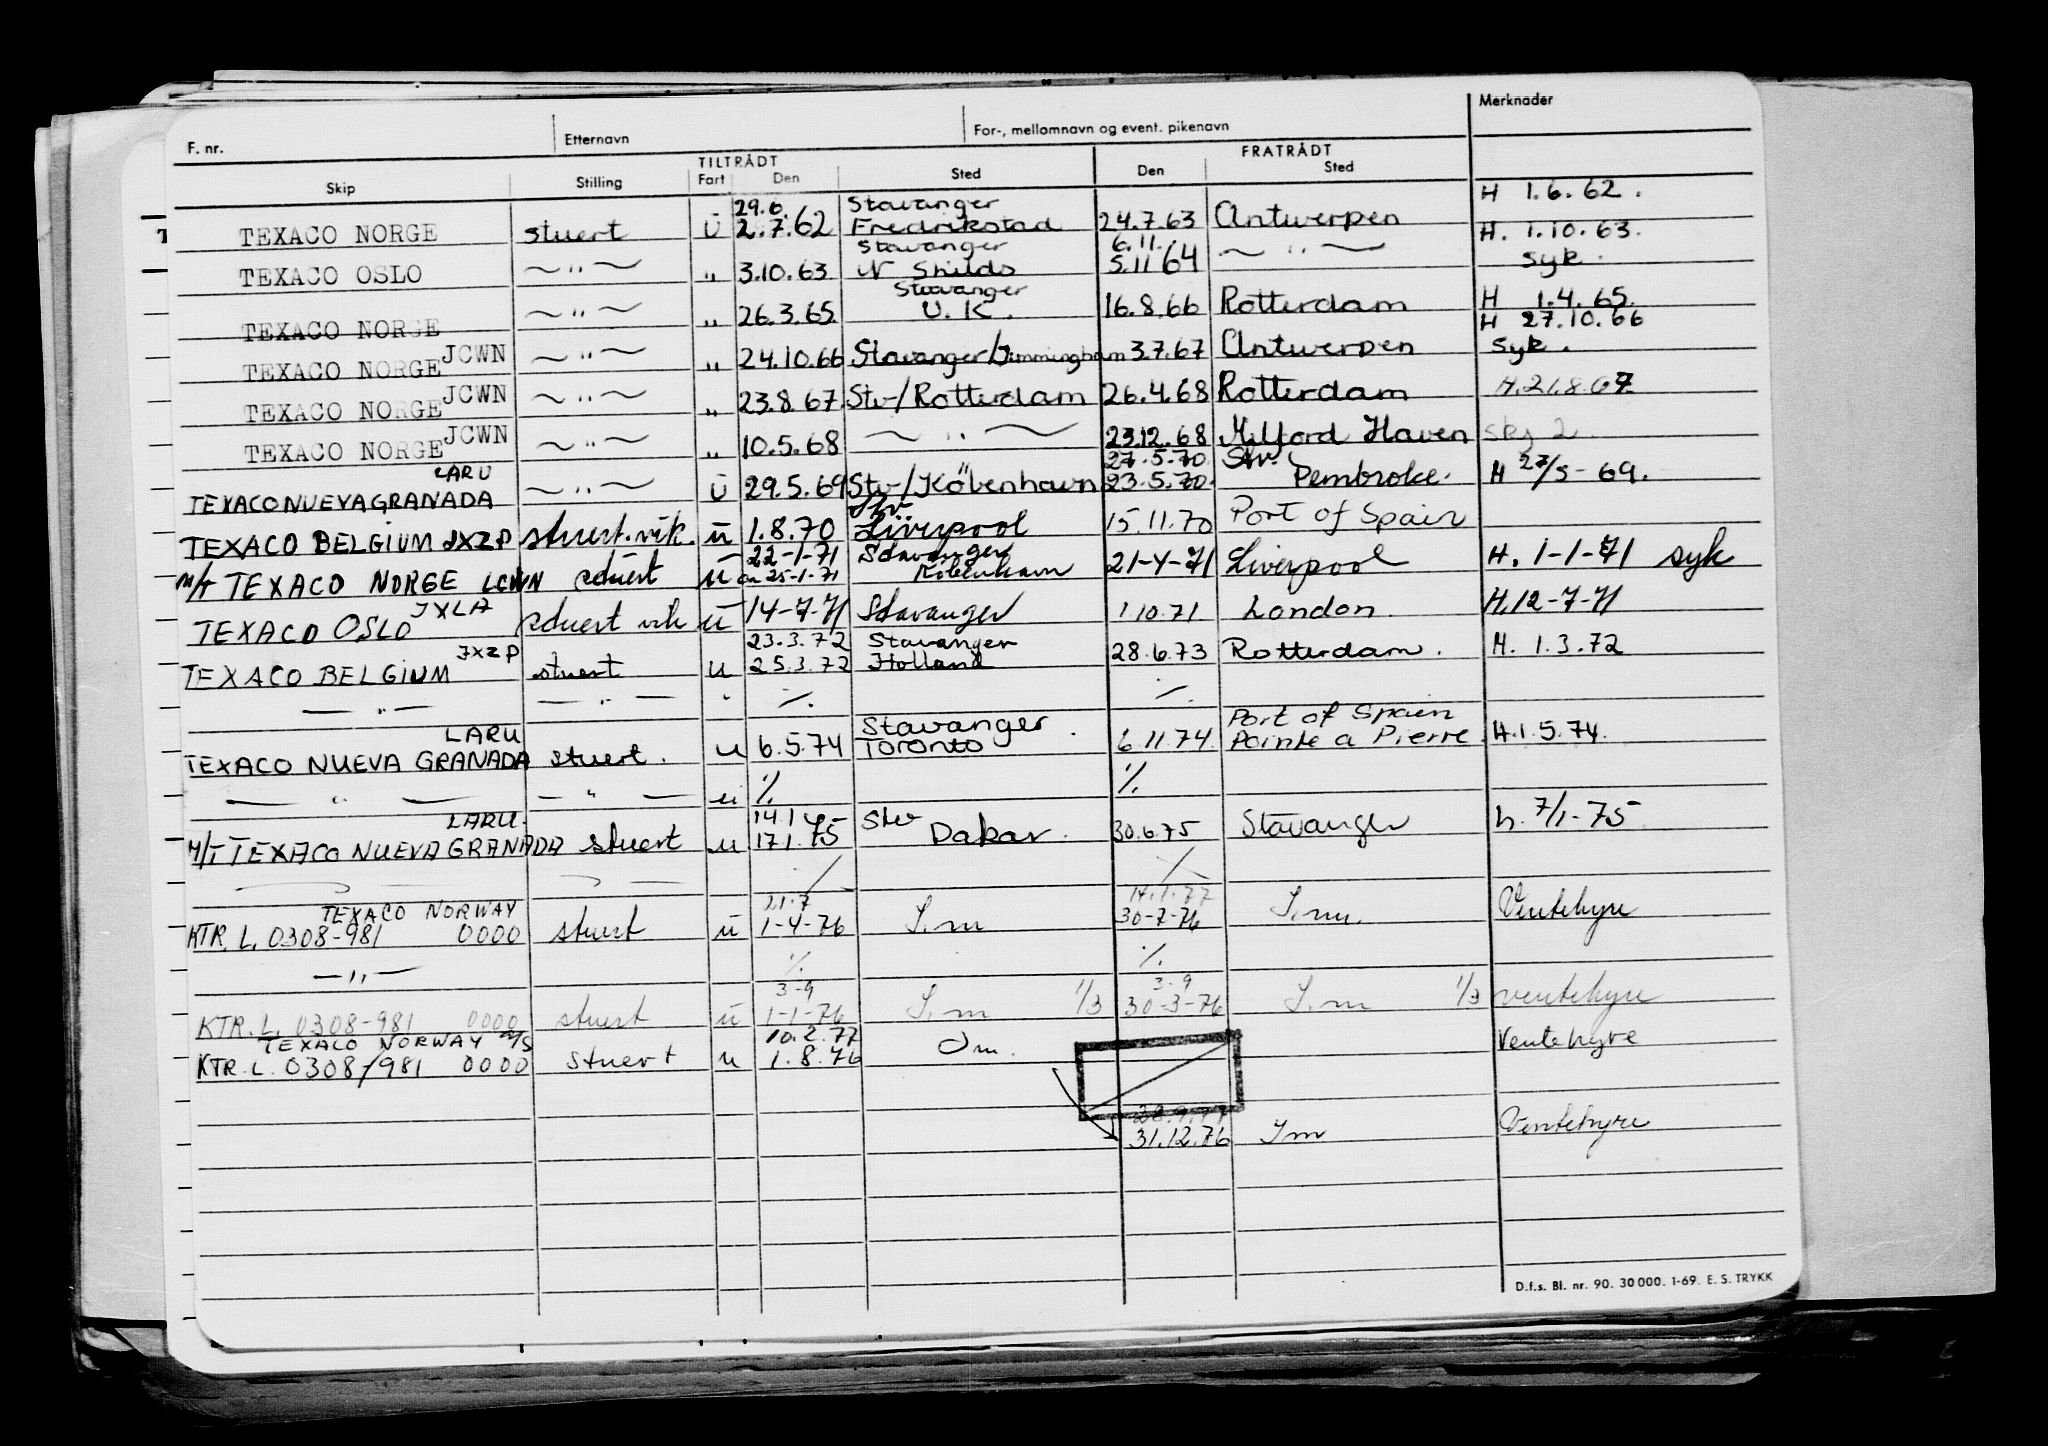 F. nr. Etternavn For-, mellomnavn og event. pikenavn Merknader
TILTRÅDT FRATRÅDT
Skip Stilling Fart Den Sted Den Sted
29.6. Stavanger H 1.6.62.
TEXACO NORGE stuert U 2.7.62 Fredrikstad 24.7.63 Antwerpen
Stavanger 6.11. H. 1.10.63.
TEXACO OSLO ~ " ~ " 3.10.63 N Shilds 5.11 64 ~ " ~ syk.
Stavanger
TEXACO NORGE ~ " ~ " 26.3.65 U.K. 16.8.66 Rotterdam H 1.4.65.
H 27.10.66
TEXACO NORGE JCWN ~ " ~ " 24.10.66 Stavanger/Immingham 3.7.67 Antwerpen syk.
TEXACO NORGE JCWN ~ " ~ " 23.8.67 Stv-/Rotterdam 26.4.68 Rotterdam H.21.8.67
TEXACO NORGE JCWN ~ " ~ " 10.5.68 ~ " ~ 23.12.68 Milford Haven
LARU 27.5.70 Stv.
TEXACO NUEVA GRANADA ~ " ~ U 29.5.69 Stv-/København 23.5.70. Pembroke. H 27/5-69.
Stv
TEXACO BELGIUM JXZP stuert.vik. u 1.8.70 Liverpool 15.11.70 Port of Spain
22-1-71 Stavanger
M/T TEXACO NORGE LCWN stuert u 25-1-71 København 21-4-71 Liverpool H. 1-1-71 syk
TEXACO OSLO JXLA stuert vik u 14-7-71 Stavanger 1.10.71 London. H.12-7-71
JXZP 23.3.72 Stavanger
TEXACO BELGIUM stuert u 25.3.72 Holland 28.6.73 Rotterdam. H. 1.3.72
— " — — " — " %. %.
LARU Stavanger Port of Spain
TEXACO NUEVA GRANADA stuert. u 6.5.74 Toronto 6.11.74 Pointe a Pierre H.1.5.74.
— " — — " — u %. %.
LARU. 14.1 Stv
M/T TEXACO NUEVA GRANADA stuert u 17.1.75 Dakar. 30.6.75 Stavanger h. 7/1-75
TEXACO NORWAY 21.7 14.1.77
KTR. L. 0308-981 0000 stuert u 1-4-76 I.m 30-7-76 I.m. Ventehyre
— " — %. %.
3-9 3-9
KTR. L. 0308-981 0000 stuert u 1-1-76 I.m 1/3 30-3-76 I.m 1/3 ventehyre
TEXACO NORWAY M/S 10.2.77
KTR. L. 0308/981 0000 stuert u 1.8.76 Om. Ventehyre
31.12.76 Im Ventehyre
D.f.s. Bl. nr. 90. 30 000. 1-69. E. S. TRYKK